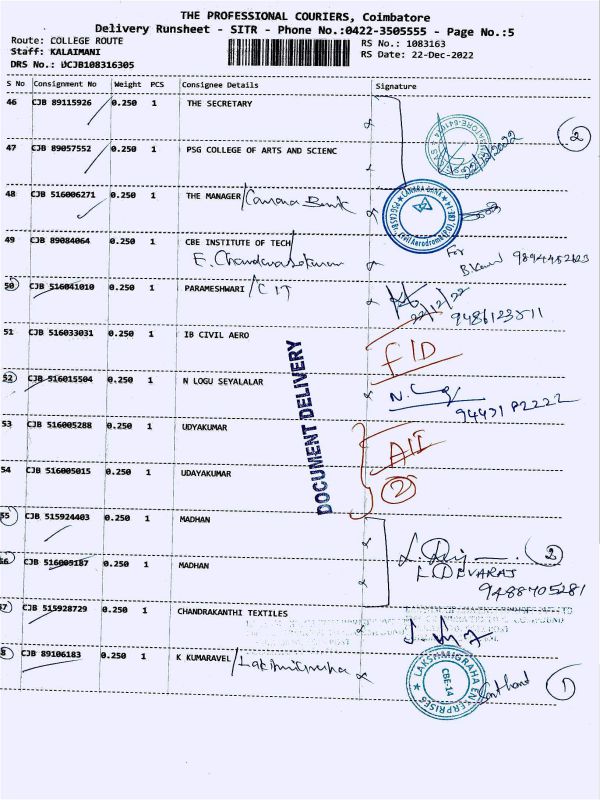 THE PROFESSIONAL COURIERS, Coimbatore
Delivery Runsheet - SITR - Phone No.:0422-3505555 - Page No.:5
Route: COLLEGE ROUTE
Staff: KALAIMANI
DRS No.: DCJB108316305
RS No.: 1083163
RS Date: 22-Dec-2022
S No Consignment No Weight PCS Consignee Details Signature
46 CJB 89115926 0.250 1 THE SECRETARY
22/12/2022 2
47 CJB 89057552 0.250 1 PSG COLLEGE OF ARTS AND SCIENC
48 CJB 516006271 0.250 1 THE MANAGER/Canara Bank
CANARA BANK
Civil Aerodrome
49 CJB 89084064 0.250 1 CBE INSTITUTE OF TECH
For
50 CJB 516041010 0.250 1 PARAMESHWARI/CIT
22/12/22
9486123511
51 CJB 516033031 0.250 1 IB CIVIL AERO
FID
52 CJB 516015504 0.250 1 N LOGU SEYALALAR
DOCUMENT DELIVERY
53 CJB 516005288 0.250 1 UDYAKUMAR
54 CJB 516005015 0.250 1 UDAYAKUMAR
2
55 CJB 515924403 0.250 1 MADHAN
2
L DEVARAJ
9488705281
56 CJB 516005187 0.250 1 MADHAN
57 CJB 515928729 0.250 1 CHANDRAKANTHI TEXTILES
58 CJB 89106183 0.250 1 K KUMARAVEL/Lakshmigraha
LAKSHMIGRAHA ENTERPRISES
CBE-14
1